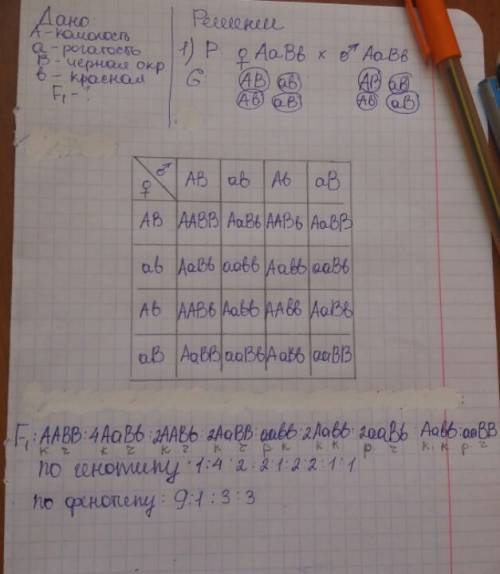 Дано:
А-комолость
а-рогатость
В-черная окр
в-красная
F₁-?
Решение
1) Р ♀ АаВв × ♂ АаВв
G АВ ав АВ ав
Ав аВ Ав аВ
♀ ♂ АВ ав Ав аВ
АВ ААВВ АаВв ААВв АаВВ
ав АаВв аавв Аавв ааВв
Ав ААВв Аавв ААвв АаВв
аВ АаВВ ааВв АаВв ааВВ
F₁: ААВВ:4АаВв:2ААВв:2АаВВ:аавв:2Аавв:2ааВв:Аавв:ааВВ
к ч к ч к ч к ч р к к к р ч к, к р ч
по генотипу: 1:4:2:2:1:2:2:1:1
по фенотипу: 9:1:3:3